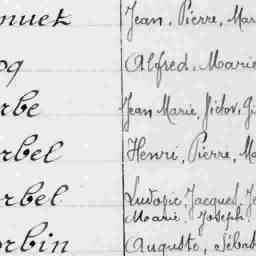 nuet Jean, Pierre, Mar
oq Alfred, Marie
rbe Jean Marie, Victor, Gi
rbel Henri, Pierre, Ma
rbel Ludovic, Jacques, Je
Marie, Joseph
orbin Auguste, Sébast